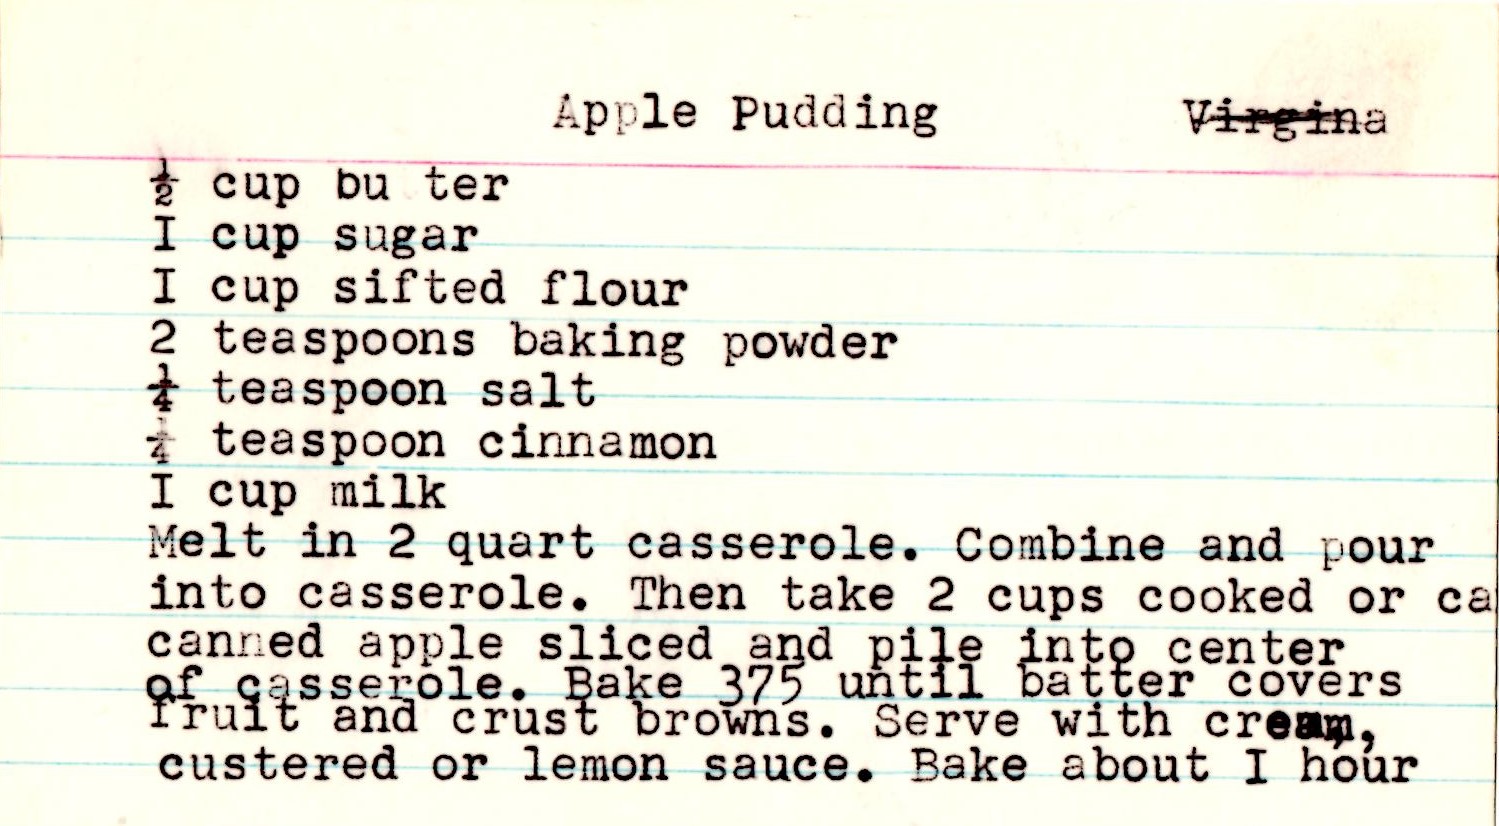 Apple Pudding Virgina
½ cup bu ter
I cup sugar
I cup sifted flour
2 teaspoons baking powder
¼ teaspoon salt
¼ teaspoon cinnamon
I cup milk
Melt in 2 quart casserole. Combine and pour
into casserole. Then take 2 cups cooked or ca
canned apple sliced and pile into center
of casserole. Bake 375 until batter covers
fruit and crust browns. Serve with cream,
custered or lemon sauce. Bake about I hour